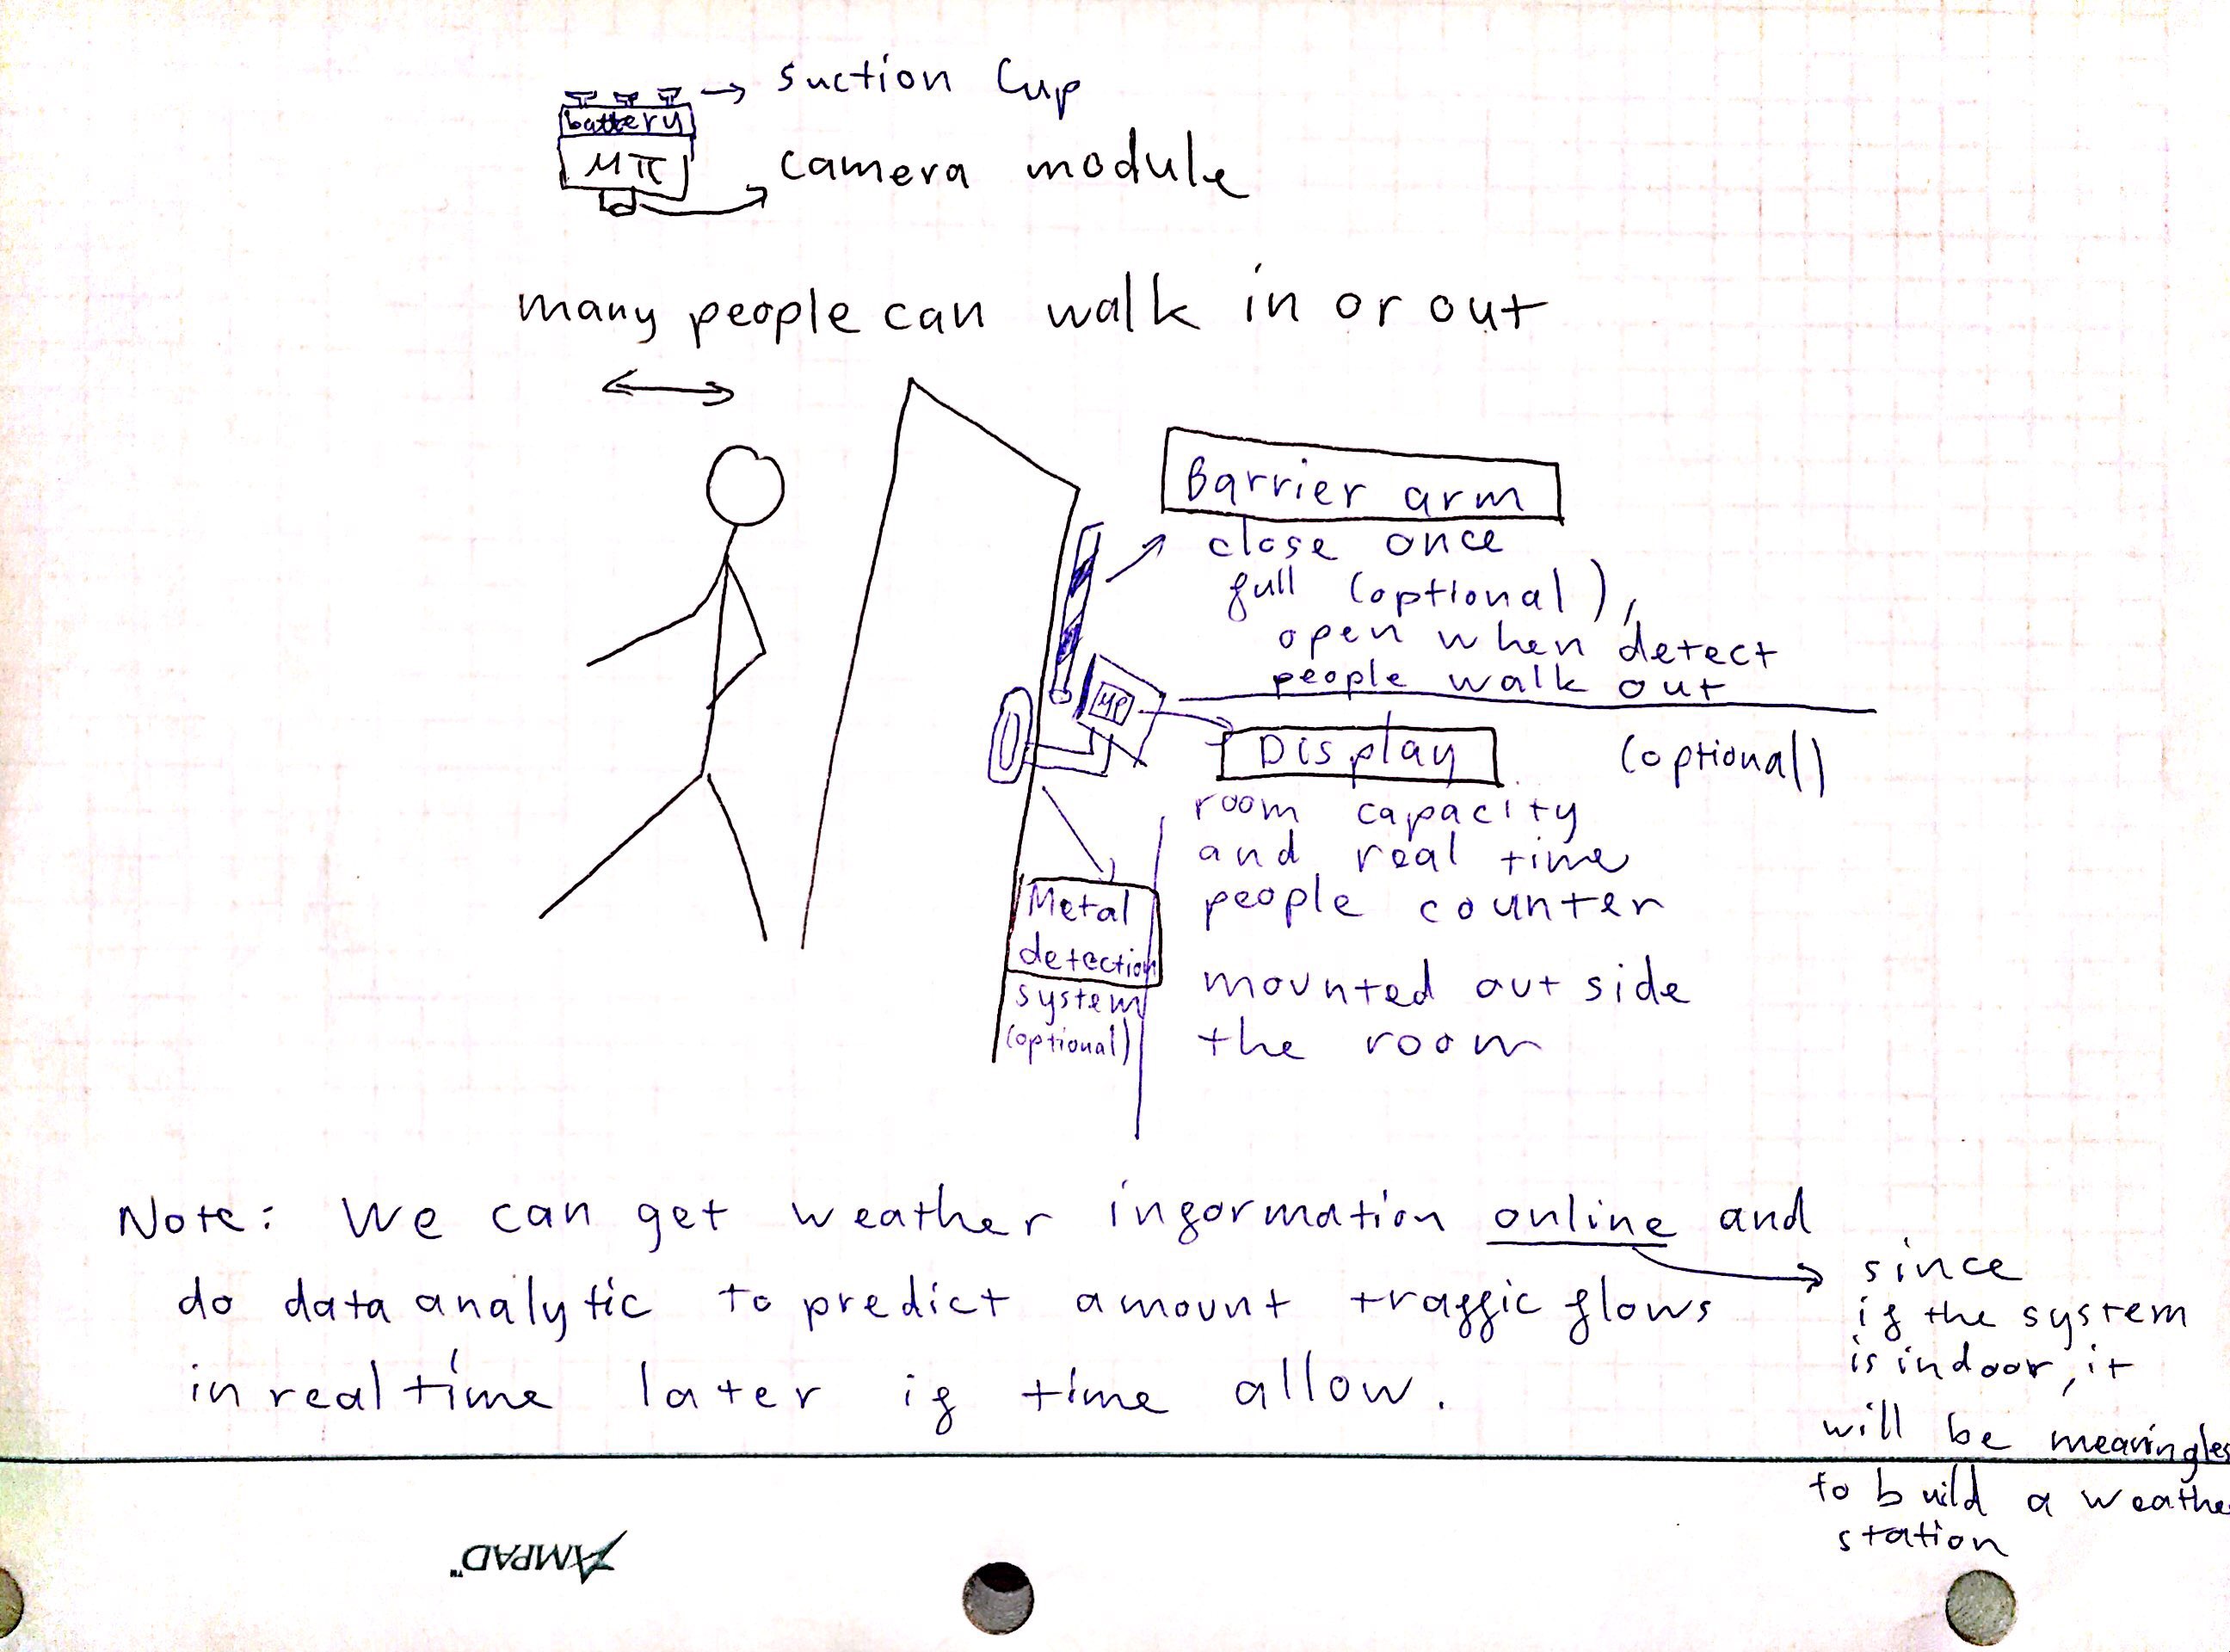 suction Cup
battery
μπ
camera module
many people can walk in or out
Barrier arm
close once
full (optional),
open when detect
people walk out
μP
Display (optional)
room capacity
and real time
people counter
mounted out side
the room
Metal
detection
system
(optional)
Note: We can get weather information online and
do data analytic to predict amount traffic flows
in real time later if time allow.
since
if the system
is indoor, it
will be meaningles
to build a weathe
station
AMPAD™